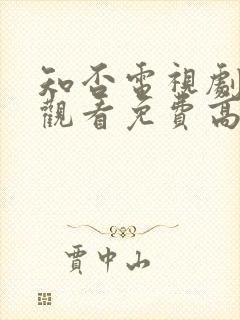 知否電視劇
觀看免費高
賈中山